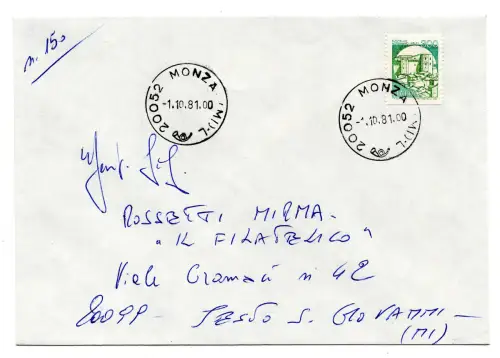 n. 150
200
20052 MONZA (MI)-L
-1.10.81.00
20052 MONZA (MI)-L
-1.10.81.00
ROSSETTI MIRMA-
"IL FILATELICO"
Viale Gramsci n 42
20099 - SESTO S. GIOVANNI -
(MI)